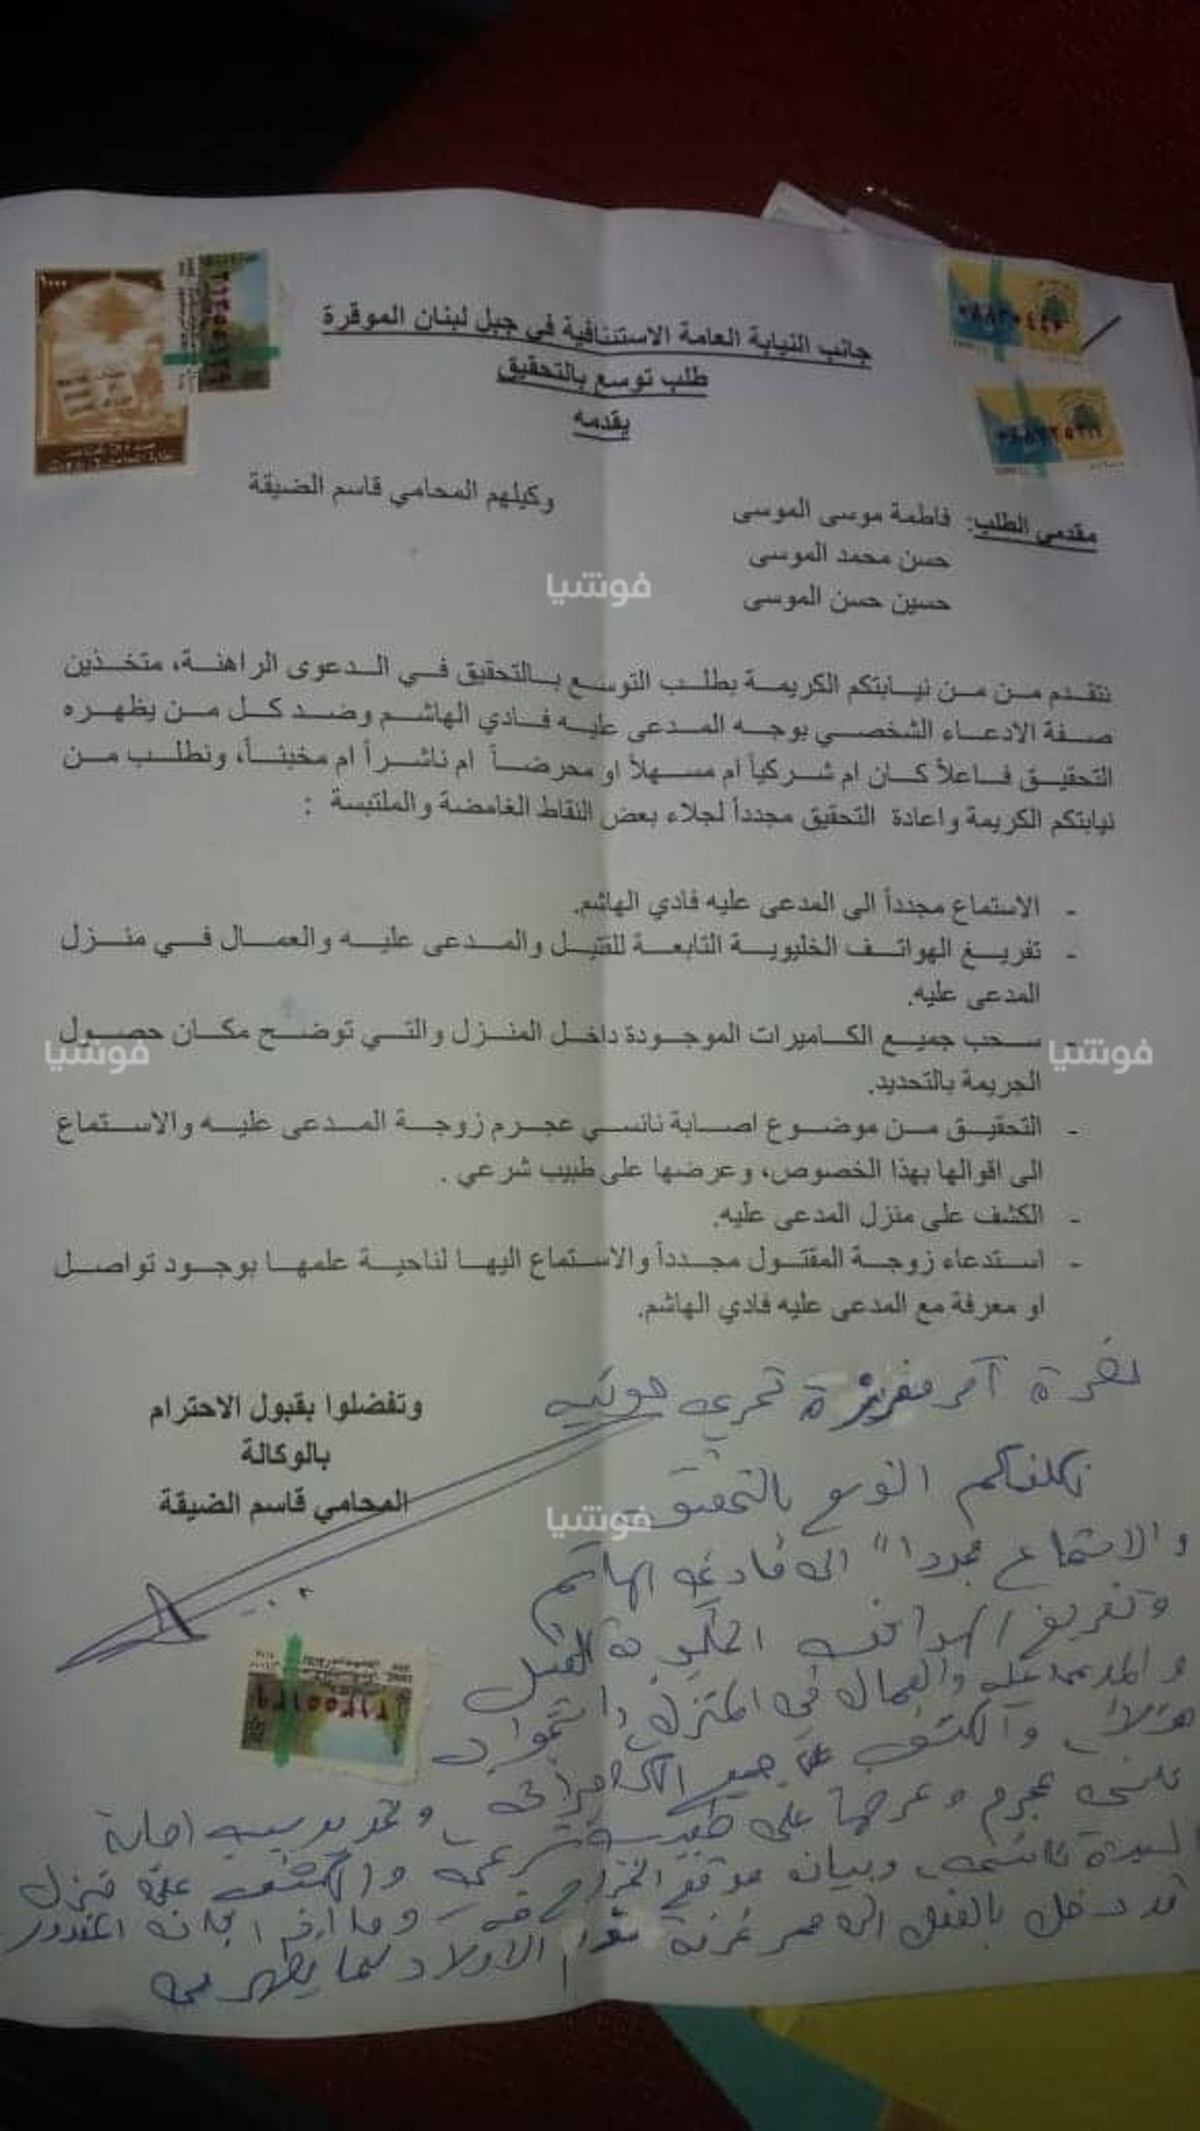 جانب النيابة العامة الاستئنافية في جبل لبنان الموقرة
طلب توسع بالتحقيق
يقدمه
مقدمي الطلب: فاطمة موسى الموسى
وكيلهم المحامي قاسم الضيقة
حسن محمد الموسى
حسين حسن الموسى
فوشيا
نتقدم من من نيابتكم الكريمة بطلب التوسع بالتحقيق في الدعوى الراهنة، متخذين
صفة الادعاء الشخصي بوجه المدعى عليه فادي الهاشم وضد كل من يظهره
التحقيق فاعلاً كان ام شركياً ام مسهلاً او محرضاً ام ناشراً ام مخبئاً، ونطلب من
نيابتكم الكريمة واعادة التحقيق مجدداً لجلاء بعض النقاط الغامضة والملتبسة :
- الاستماع مجدداً الى المدعى عليه فادي الهاشم.
- تفريغ الهواتف الخليوية التابعة للقتيل والمدعى عليه والعمال في منزل
المدعى عليه.
- سحب جميع الكاميرات الموجودة داخل المنزل والتي توضح مكان حصول
فوشيا
فوشيا
الجريمة بالتحديد.
- التحقيق من موضوع اصابة نانسي عجرم زوجة المدعى عليه والاستماع
الى اقوالها بهذا الخصوص، وعرضها على طبيب شرعي .
- الكشف على منزل المدعى عليه.
- استدعاء زوجة المقتول مجدداً والاستماع اليها لناحية علمها بوجود تواصل
او معرفة مع المدعى عليه فادي الهاشم.
وتفضلوا بقبول الاحترام
بالوكالة
المحامي قاسم الضيقة
فوشيا
حضرة آمر مفرزة تحري
نكلفكم التوسع بالتحقيق
والاستماع مجدداً الى فادي الهاشم
وتفريغ الهواتف الخليوية القتيل
والمدعى عليه والعمال في المنزل
والكشف على جميع الكاميرات
نانسي عجرم وعرضها على طبيب شرعي وتحديد سبب اصابة
السيدة نانسي وبيان موقع والكشف على منزل
قد دخل بالفعل الى ممر غرفة نوم الاولاد